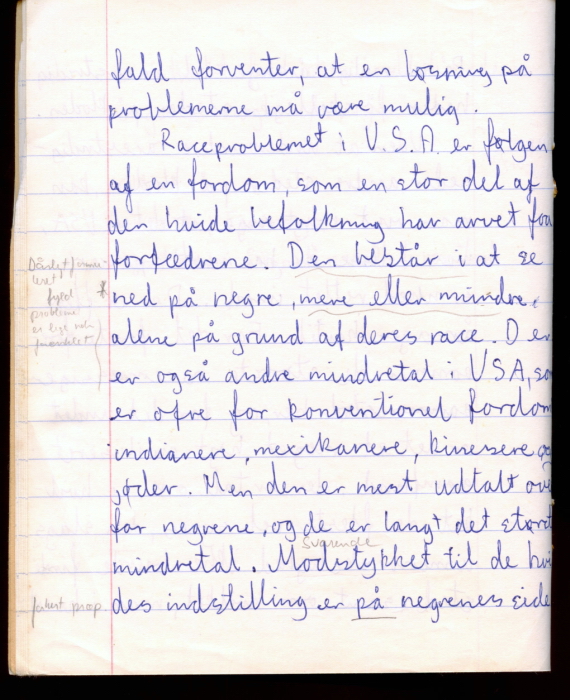 fald forventer, at en løsning på
problemerne må være mulig.
Raceproblemet i U.S.A. er følgen
af en fordom, som en stor del af
den hvide befolkning har arvet fra
forfædrene. Den består i at se
ned på negre, mere eller mindre,
alene på grund af deres race. Der
er også andre mindretal i USA, so
er ofre for konventionel fordom
indianere, mexikanere, kinesere og
jøder. Men den er mest udtalt ove
for negrene, og de er langt det størst
Svarende
mindretal. Modstykket til de hvi
des indstilling er på negrenes side
Dårligt formu-
leret
probleme
er lige nok
forkert præp.